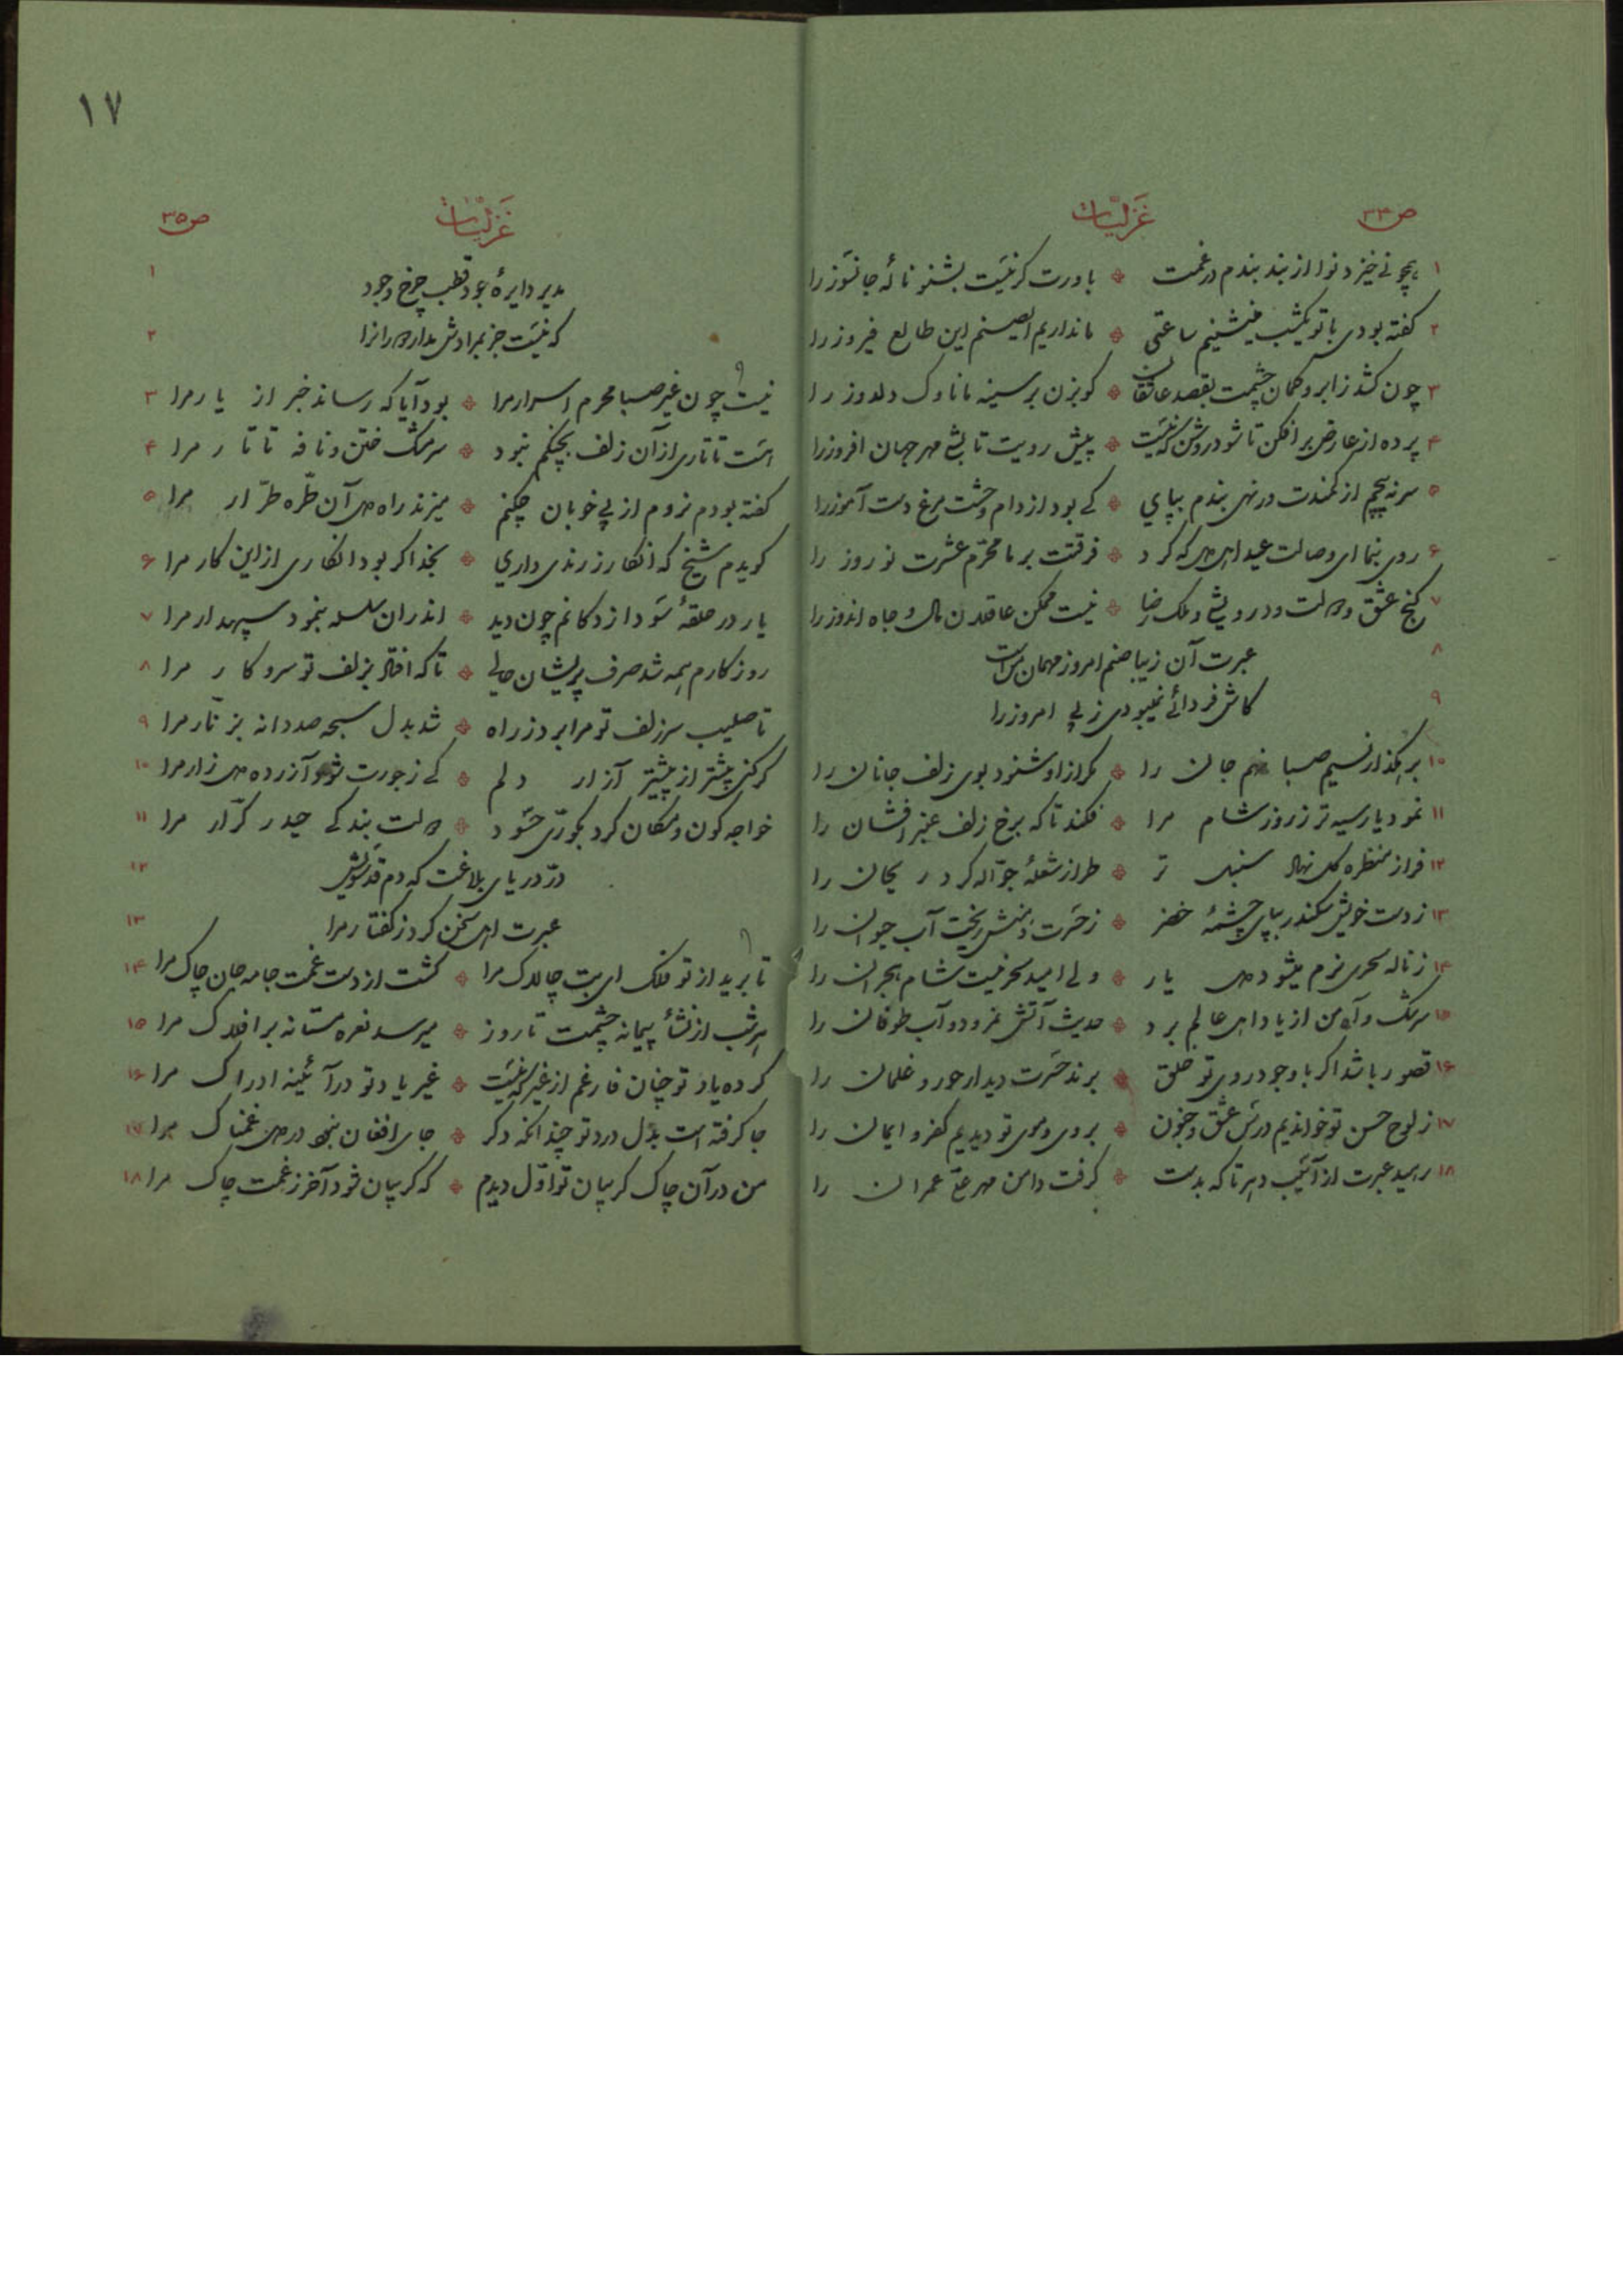 ص ۳۴ غزلیات
۱ همچو نی خیزد نوا از بند بندم در غمت * باورت گر نیست بشنو نالهٔ جانسوز را
۲ گفته بودی با تو یکشب مینشینم ساعتی * ما نداریم ای صنم این طالع فیروز را
۳ چون کشد ز ابرو کمان چشمت بقصد عاشقان * گو بزن بر سینه ما ناوک دلدوز را
۴ پرده از عارض برافکن تا شود روشن که نیست * پیش رویت تابشی مهر جهان افروز را
۵ سر نپیچم از کمندت ور نهی بندم بپای * کی بود از دام وحشت مرغ دست آموز را
۶ روی بنما ای وصالت عید اهل دل که کرد * فرقتت بر ما محرّم عشرت نوروز را
۷ گنج عشق و دولت درویشی و ملک رضا * نیست ممکن عاقلان مال و جاه اندوز را
۸ عبرت آن زیبا صنم امروز مهمان من است
۹ کاش فردائی نمیبودی ز پی امروز را
۱۰ برهگذار نسیم صبا نهم جان را * مگر از او شنود بوی زلف جانان را
۱۱ نمود یار سیه تر ز روز شام مرا * فکند تا که برخ زلف عنبر افشان را
۱۲ فراز منظره گل نهال سنبل تر * طراز شعلهٔ جوّاله کرد ریحان را
۱۳ ز دست خویش سکندر بپای چشمهٔ خضر * ز حسرت دهنش ریخت آب حیوان را
۱۴ ز ناله سحری نرم میشود دل یار * ولی امید سحر نیست شام هجران را
۱۵ سرشک و آه من از یاد اهل عالم برد * حدیث آتش نمرود و آب طوفان را
۱۶ قصور باشد اگر با وجود روی تو خلق * برند حسرت دیدار حور و غلمان را
۱۷ ز لوح حسن تو خواندیم درس عشق و جنون * بروی و موی تو دیدیم کفر و ایمان را
۱۸ رهید عبرت از آسیب دهر تا که بدست * گرفت دامن مهر علی عمران را
۱۷
ص ۳۵ غزلیات
۱ مدیر دایرهٔ جود قطب چرخ وجود
۲ که نیست جز بمرادش مدار دوران را
۳ نیست چون غیر صبا محرم اسرار مرا * بود آیا که رساند خبر از یار مرا
۴ هست تا تاری از آن زلف بچنگم نبود * سر مشک ختن و نافه تاتار مرا
۵ گفته بودم نروم از پی خوبان چکنم * میزند راه دل آن طرّه طرّار مرا
۶ گویدم شیخ که انکار ز رندی داری * بخدا گر بود انکاری از این کار مرا
۷ یار در حلقهٔ سودازدگانم چون دید * اندران سلسله بنمود سپهدار مرا
۸ روزگارم همه شد صرف پریشان حالی * تا که افتاد بزلف تو سر و کار مرا
۹ تا صلیب سر زلف تو مرا برد ز راه * شد بدل سبحه صد دانه بزنّار مرا
۱۰ گر کنی بیشتر از پیشتر آزار دلم * کی ز جورت شود آزرده دل زار مرا
۱۱ خواجه کون و مکان کرد بکوریّ حسود * دولت بندگی حیدر کرّار مرا
۱۲ درّ دریای بلاغت که دم قدّوسیش
۱۳ عبرت اهل سخن کرد ز گفتار مرا
۱۴ تا برید از تو فلک ای بت چالاک مرا * گشت از دست غمت جامه جان چاک مرا
۱۵ هر شب از نشأ پیمانه چشمت تا روز * میرسد نعره مستانه بر افلاک مرا
۱۶ کرده یاد تو چنان فارغم از غیر که نیست * غیر یاد تو در آئینه ادراک مرا
۱۷ جا گرفته است بدل درد تو چندانکه دگر * جای افغان نبود در دل غمناک مرا
۱۸ من در آن چاک گریبان تو اوّل دیدم * که گریبان شود آخر ز غمت چاک مرا